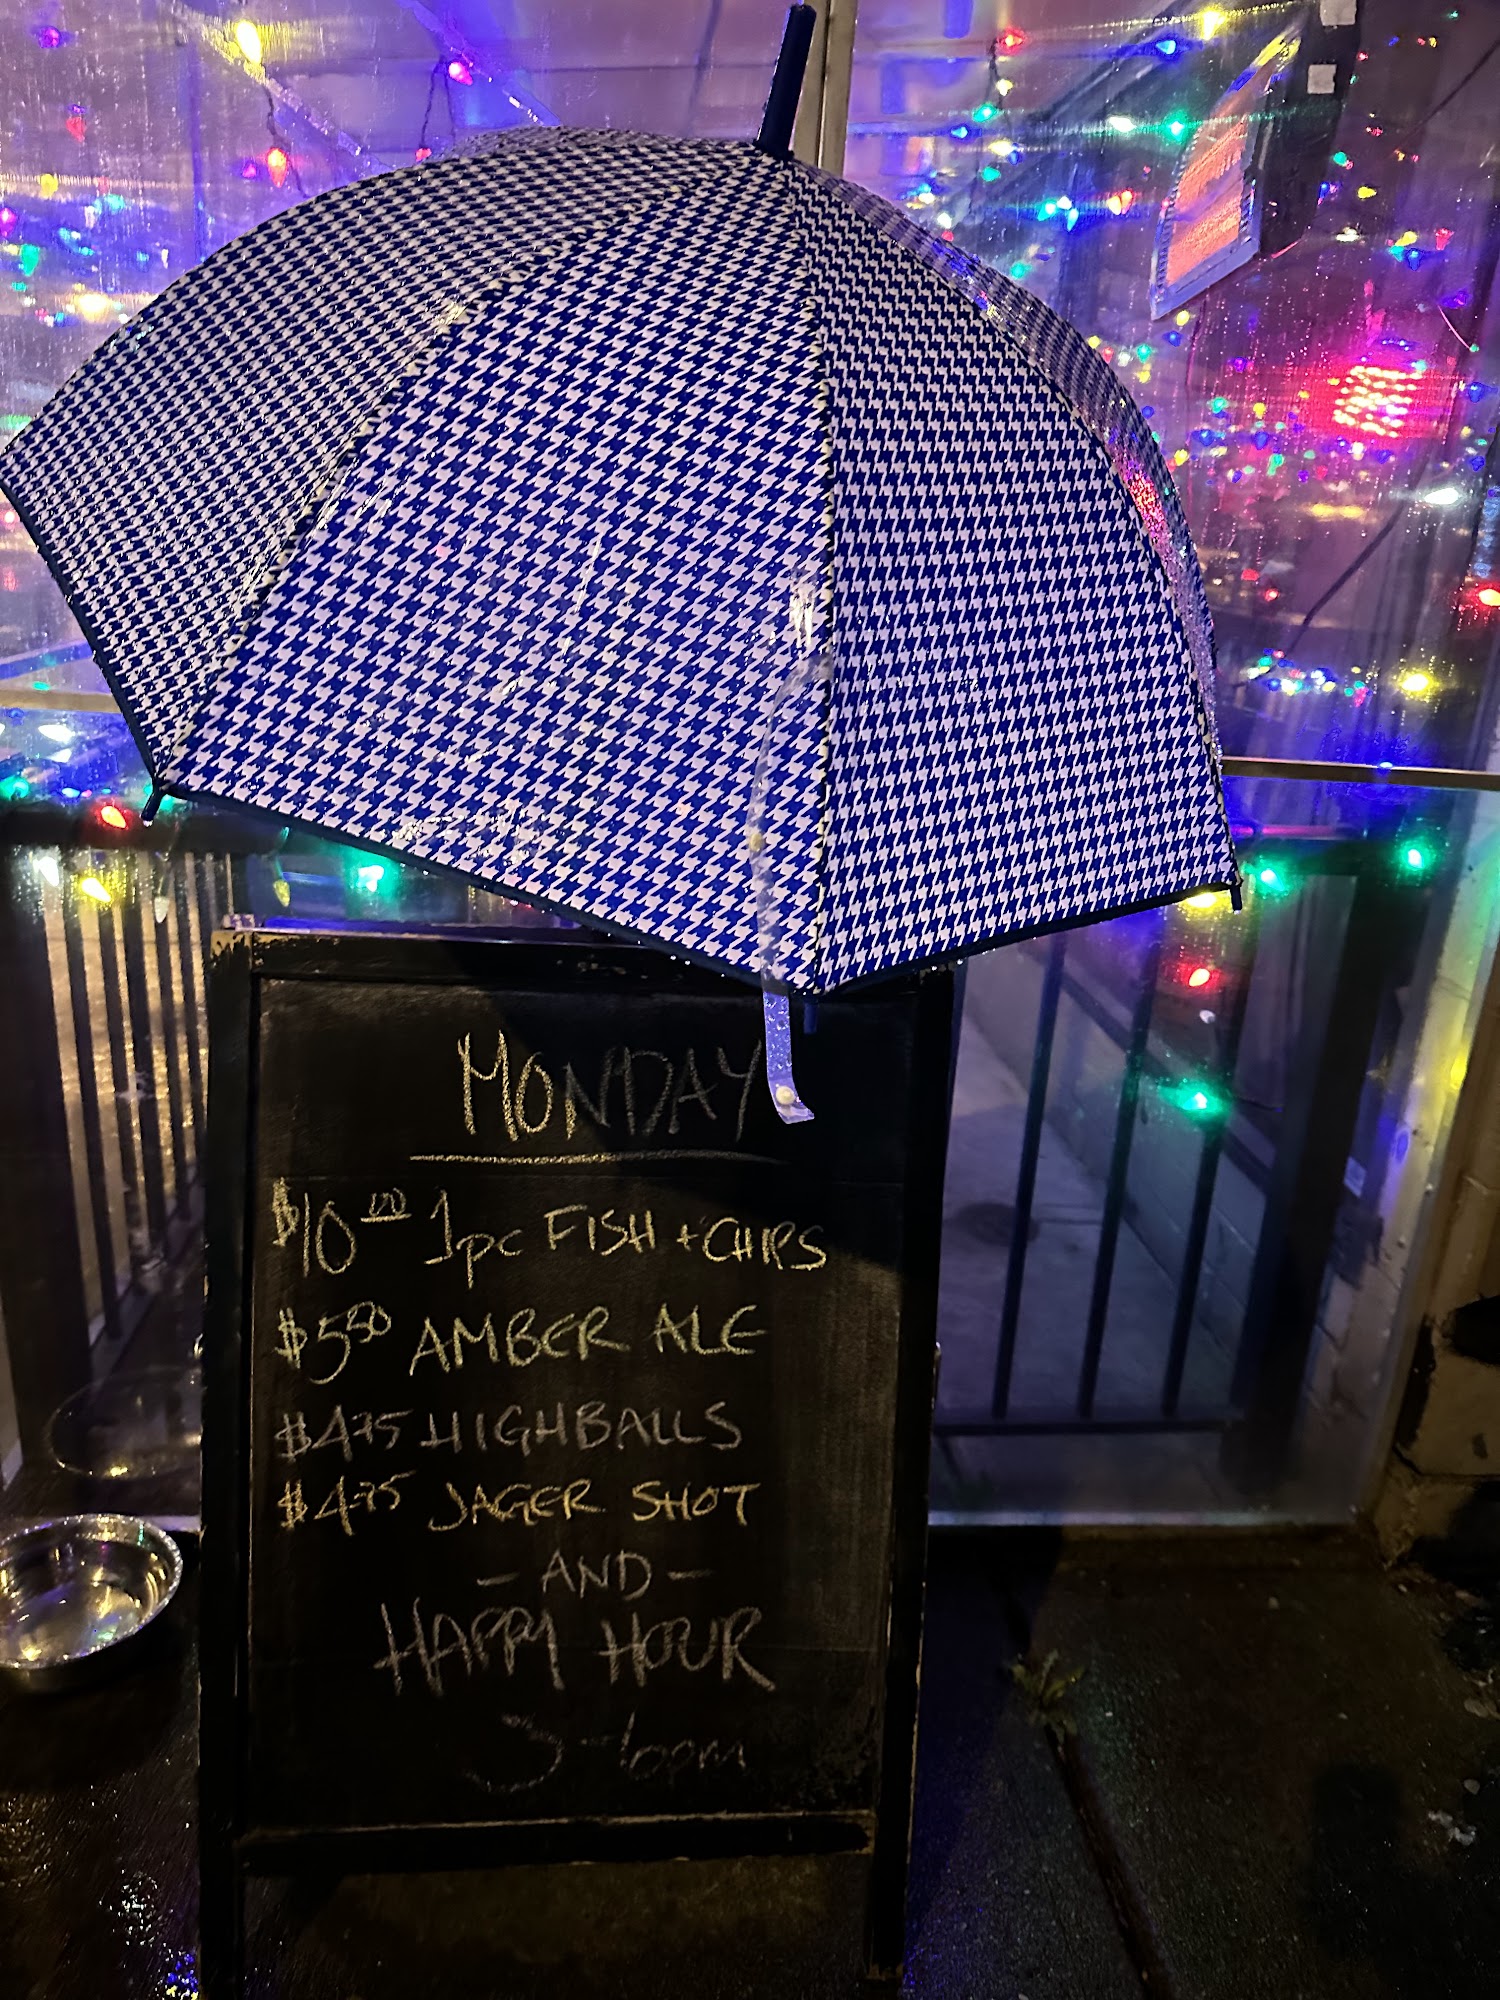 MONDAY
$10.00 1pc FISH + CHIPS
$5.50 AMBER ALE
$4.75 HIGHBALLS
$4.75 JAGER SHOT
- AND -
HAPPY HOUR
3-6pm